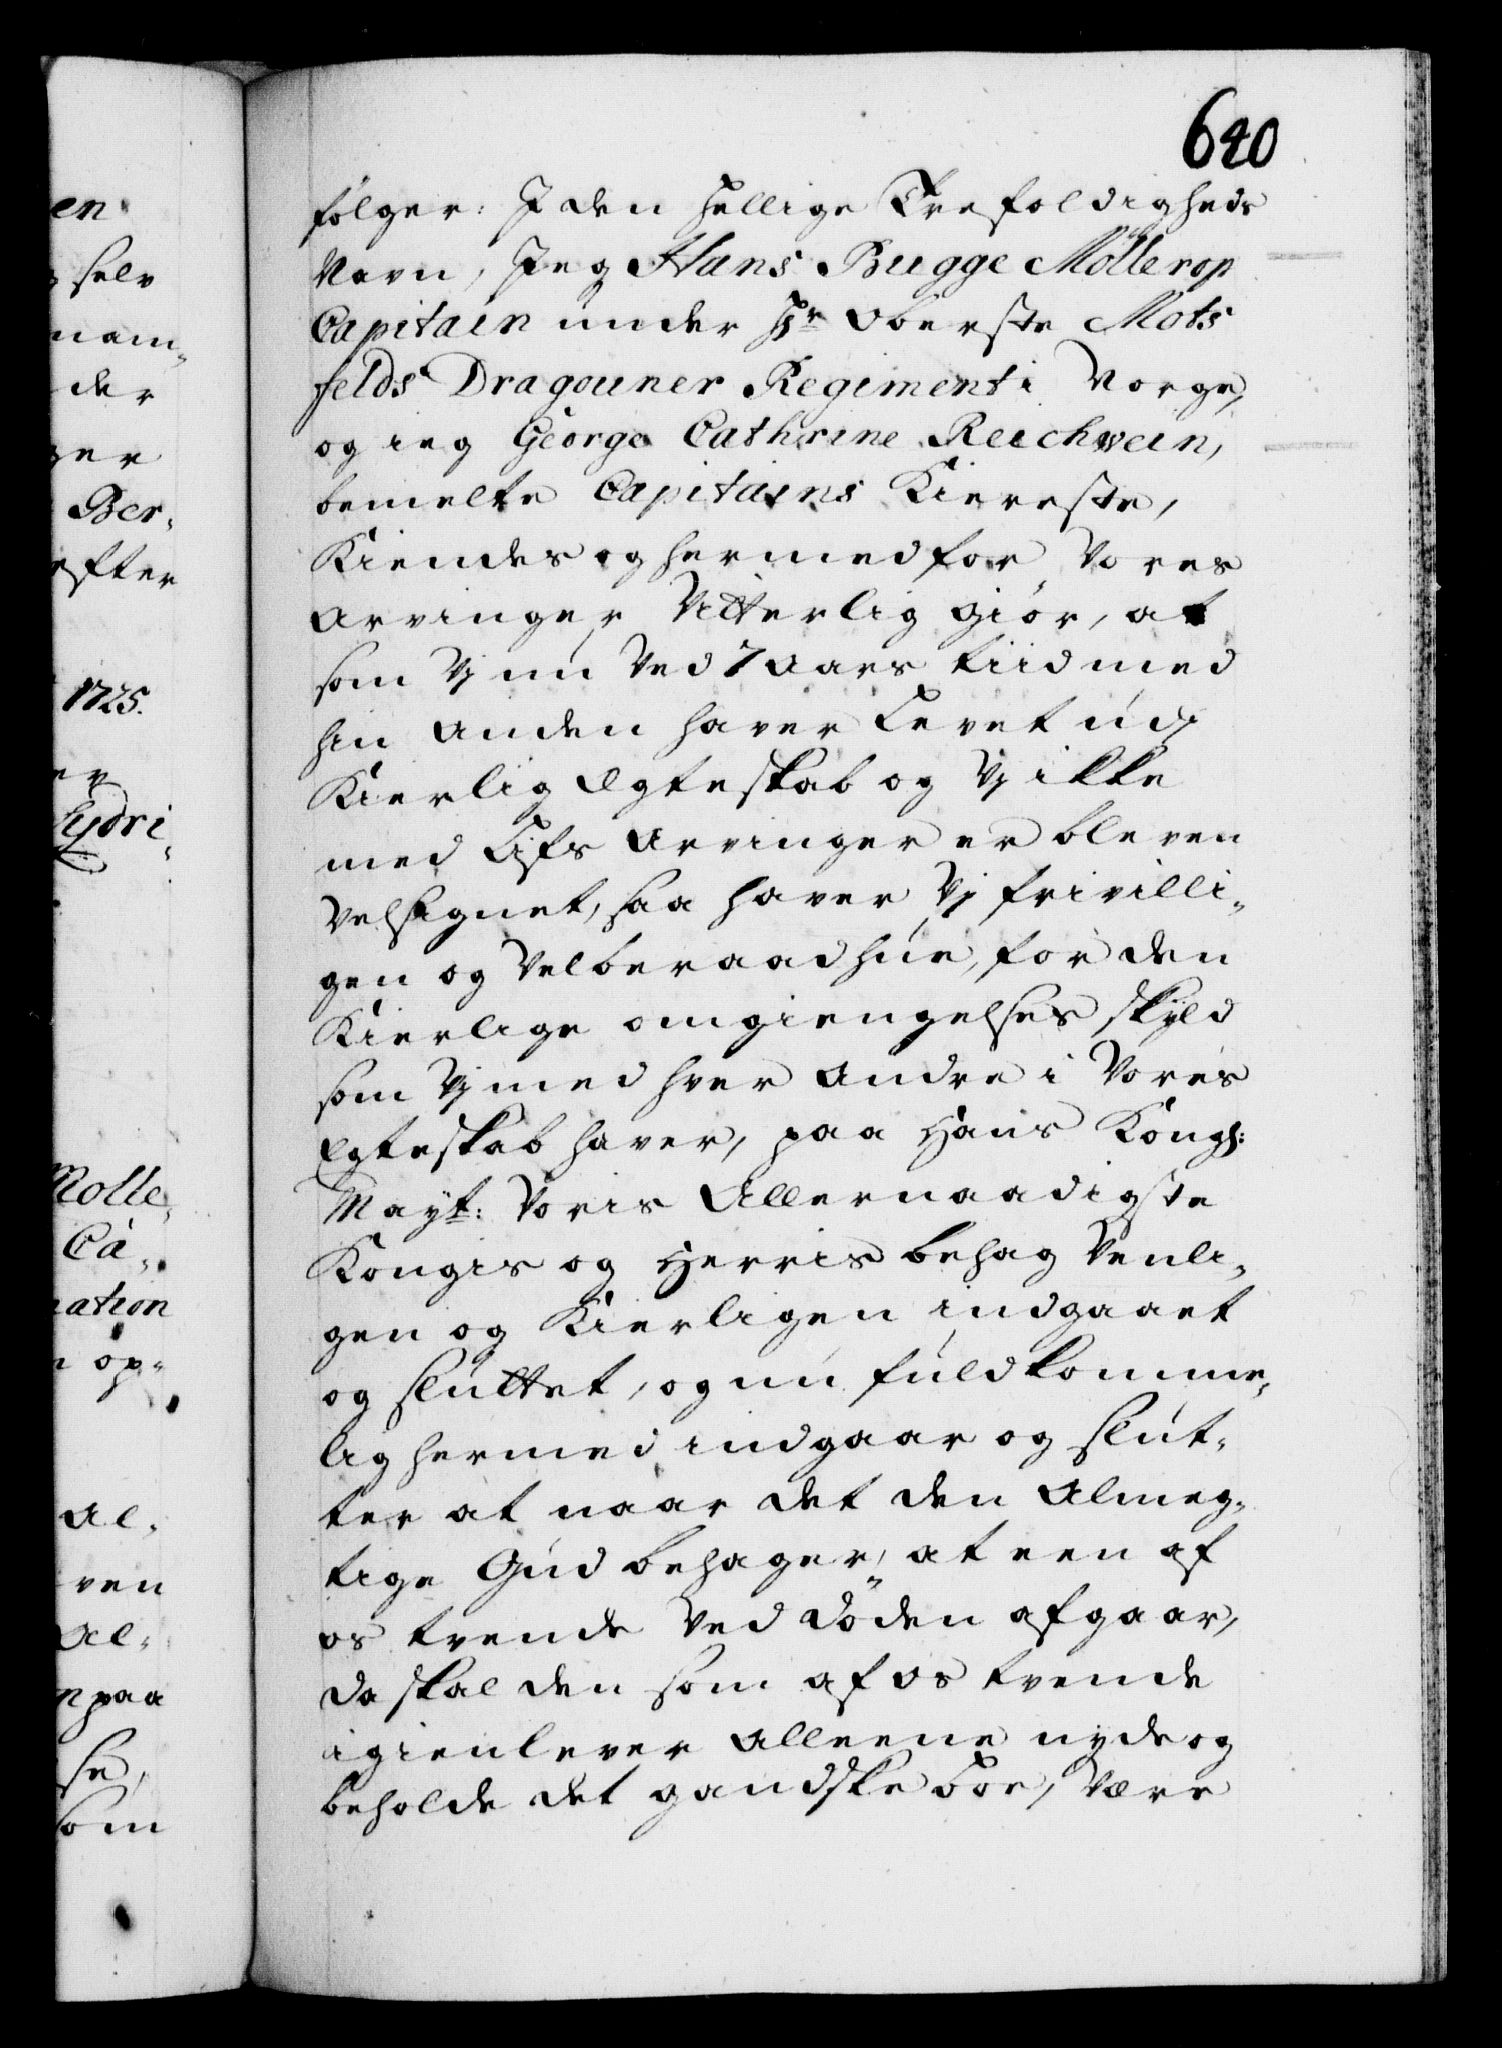 640
følger: I den hellige Trefoldigheds
Navn, Jeg Hans Bugge Möllerop
Capitain under Hr Oberste Mots
felds Dragouner Regiment i Norge,
og ieg George Cathrine Reichwein,
bemelte Capitains Kiereste,
Kiendes og hermed for Vores
Arvinger Vitterlig giör, at
som Vj nu Ved 7 Aars tiid med
hin Anden haver Levet udj
Kierlig Ægteskab og Vj ikke
med Lifs Arvinger er bleven
Velsignet, saa haver Vj frivilli-
gen og Velberaad hue, for den
Kierlige omgiengelses skyld
som Vj med hver Andre i Vores
Egteskab haver, paa Hans Kongl:
Mayt: Voris Allernaadigste
Kongis og Herris behag Venli-
gen og Kierligen indgaaet
og sluttet, og nu fuldkomme-
lig hermed indgaar og slut-
ter at naar det den Almeg-
tige Gud behager, at een af
os tvende Ved Döden afgaar,
da skal den som af os tvende
igienlever Alleene nyde og
beholde det gandske Boe, Være
en
selv
nam-
der
ger
Ber-
efter
1725.
er
Lydri-
Molle-
Ca-
nation
op-
Al-
ven
Al-
paa
se,
som